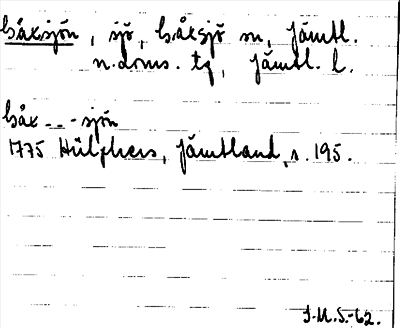 Båxsjön, sjö, Båxsjö sn, Jämtl.
n. doms. tg, Jämtl. l.
båx - - - sjön
1775 Hülphers, Jämtland, s. 195.
J.M.S.-62.